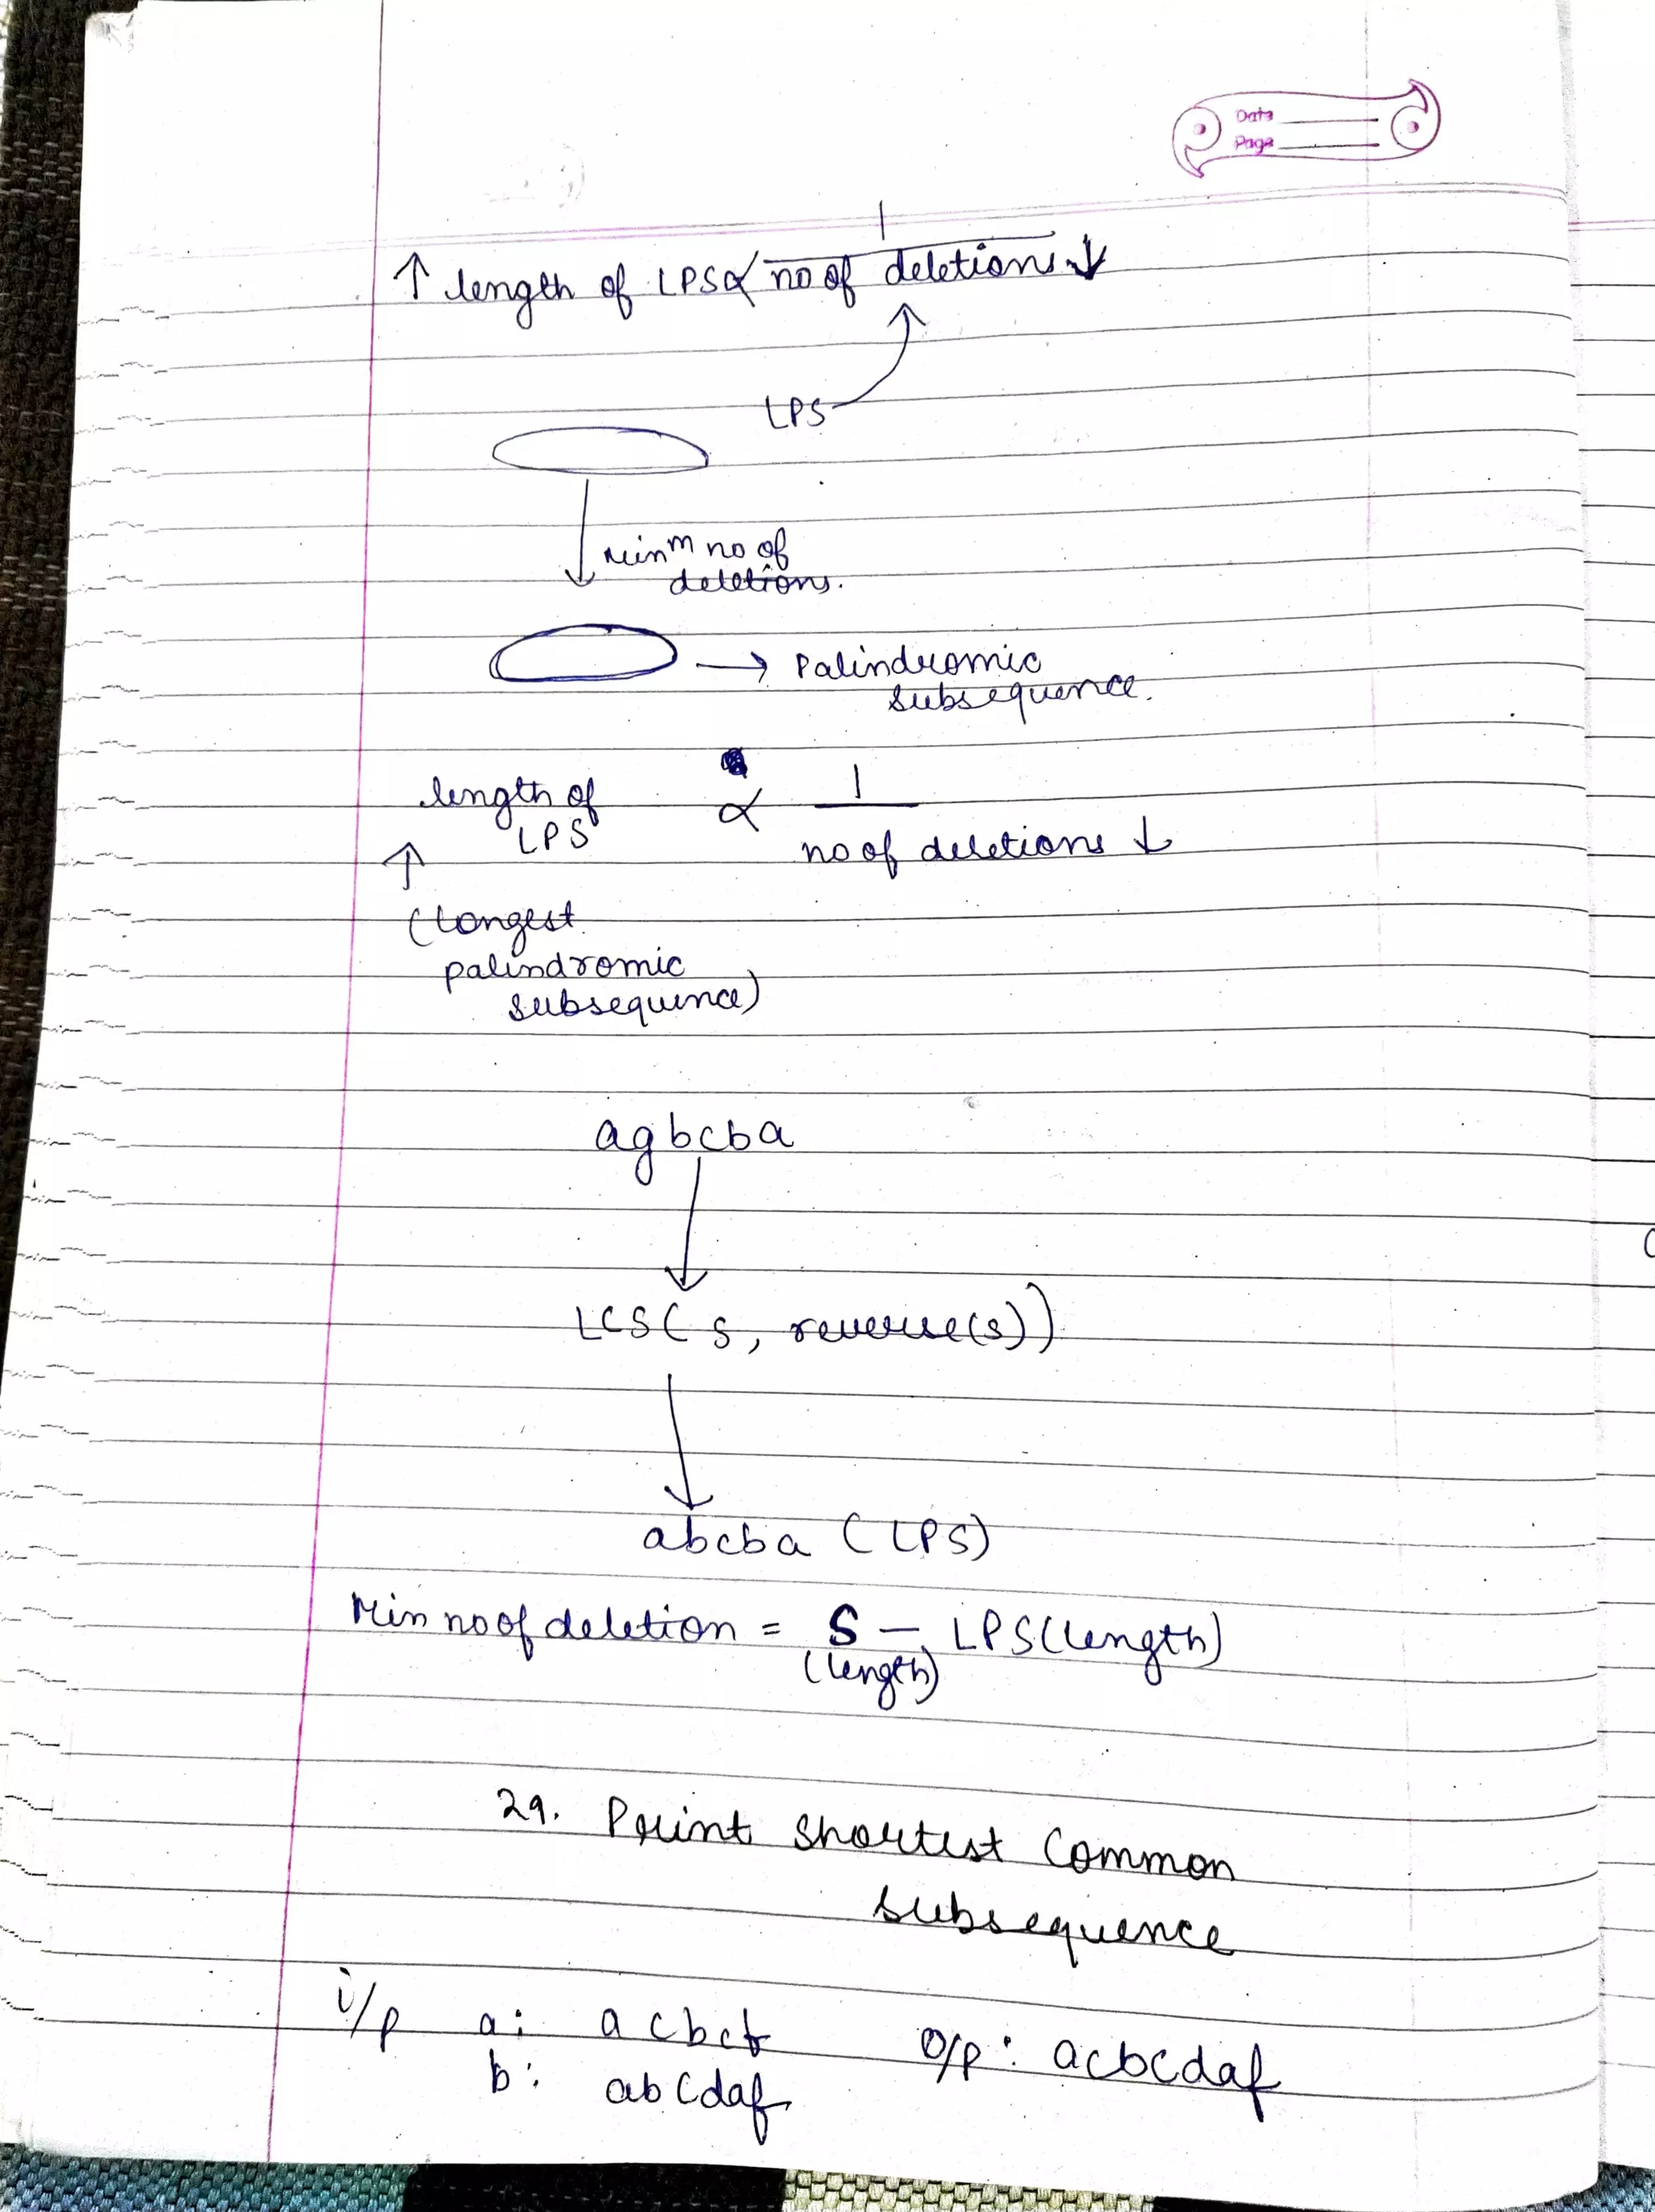 Date
Page
1
↑ length of LPS ∝ no of deletions ↓
LPS
minm no of
deletions.
→ Palindromic
subsequence.
length of ∝ 1
LPS no of deletions ↓
↑
(longest
palindromic
subsequence)
agbcba
LCS(s, reverse(s))
abcba (LPS)
Min no of deletion = S - LPS(length)
(length)
29. Print shortest Common
subsequence
i/p a: acbcf o/p: acbcdaf
b: abcdaf